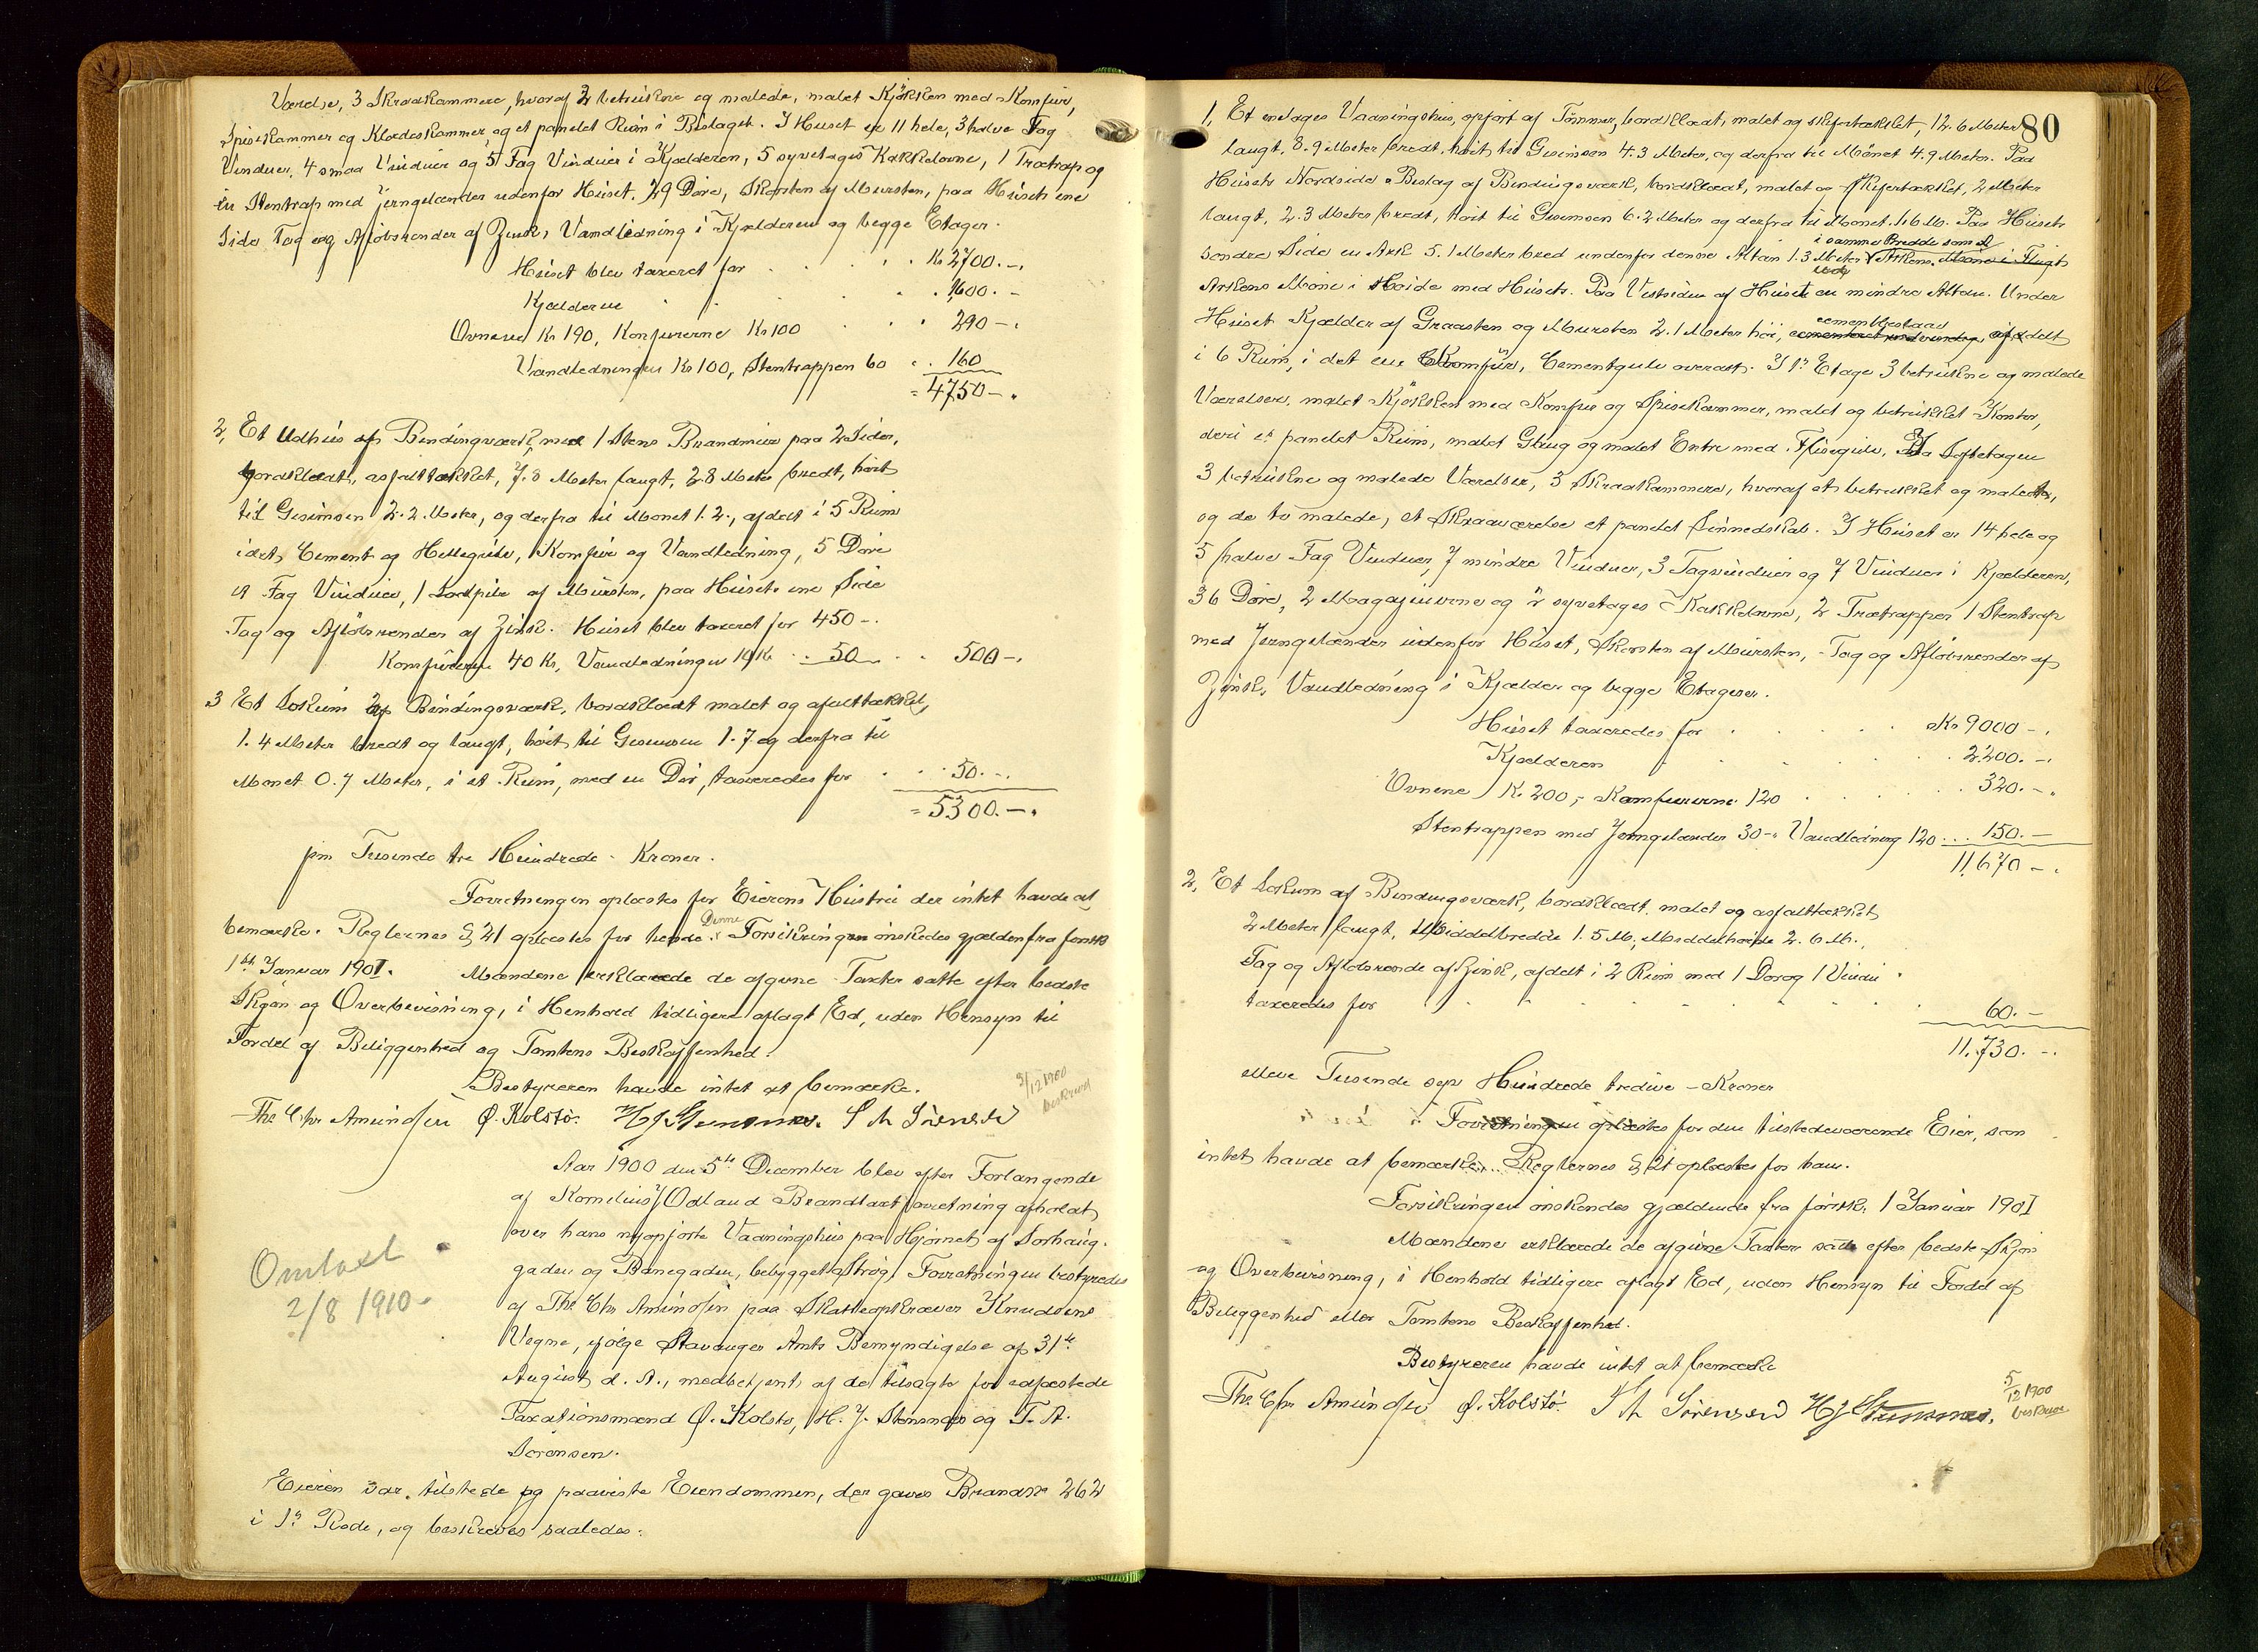 Værelse, 3 Skraakammere, hvoraf 2 betrukne og malede, malet Kjøkken med Komfur,
Spiskammer og Klædeskammer, og et panelet Rum i Bislaget. I Huset er 11 hele, 3 halve Fag
Vinduer, 4 smaa Vinduer og 5 Fag Vinduer i Kjælderen, 5 syvetages Kakkelovne, 1 Trætrap og
en Stentrap med Jerngelænder udenfor Huset. 29 Døre, Skorsten af Mursten, paa Husets ene
Side Tag og Afløbsrender af Zink, Vandledning i Kjælderen og begge Etager.
Huset blev taxeret for . . . . Kr 2700.-.
Kjælderne . . . . 1600.-
Ovnene Kr 190, Komfurerne Kr 100 . . . 290-.
Vandledningen Kr 100, Stentrappen 60 . . 160
= 4750-.
2, Et Udhus af Bindingsværk, med 1 Stens Brandmur paa 2 Sider,
bordklædt, asfalttækket, 7.8 Meter langt, 2.8 Meter bredt, høit
til Gesimsen 2.2 Meter, og derfra til Mønet 1.2., afdelt i 5 Rum
i det, Cement og Hellegulv, Komfur og Vandledning, 5 Døre
Fag Vinduer, 1 Lodpibe af Mursten, paa Husets ene Side
Tag og Afløbsrender af Zink. Huset blev taxeret for 450-.
Komfuren 40 Kr, Vandledningen 10 Kr . . 50 . . 500-.
3 Et Lokum af Bindingsværk, bordklædt malet og asfalttækket,
1.4 Meter bredt og langt, høit til Gesimsen 1.7 og derfra til
Mønet 0.7 Meter, i et Rum, med en Dør, taxeredes for . . 50.-.
= 5300.-.
fem Tusende tre Hundrede Kroner.
Forretningen oplæstes for Eierens Hustru der intet havde at
bemærke. Reglernes § 21 oplæstes for hende. Denne Forsikringen ønskedes gjældende fra første
1ste Januar 1901. Mændene erklærede de afgivne Taxter satte efter bedste
Skjøn og Overbevisning, i Henhold tidligere aflagt Ed, uden Hensyn til
Fordel af Beliggenhed og Tomtens Beskaffenhed.
Bestyreren havde intet at bemærke.
3/12 1900
beskrevet
Ths. Chr Amundsen Ø. Kolstø. H J Stensnæs. T A Sørensen
Aar 1900 den 5te December blev efter Forlangende
af Kornelius J Ødland Brandtaxtforretning afholdt
over hans nyopførte Vaaningshus paa Hjørnet af Sørhaug-
gaden og Banegaden, bebygget Strøg. Forretningen bestyredes
af Ths. Chr Amundsen paa Skatteopkræver Knudsens
Vegne, ifølge Stavanger Amts Bemyndigelse af 31te
August d. A., medbetjent af de tilsagte før edfæstede
Taxationsmænd Ø. Kolstø, H. J. Stensnæs og T. A.
Sørensen.
Omtaxt
2/8 1910.
Eieren var tilstede og paaviste Eiendommen, der gaves Brandnr 262
i 1ste Rode, og beskreves saaledes:
80
1, Et enetages Vaaningshus, opført af Tømmer, bordklædt, malet og skifertækket, 12.6 Meter
langt, 8.9 Meter bredt, høit til Gesimsen 4.3 Meter, og derfra til Mønet 4.9 Meter. Paa
Husets Nordside Bislag af Bindingsværk, bordklædt, malet og skifertækket, 2 Meter
langt, 2.3 Meter bredt, høit til Gesimsen 6.2 Meter og derfra til Mønet 1.6 M. Paa Husets
i samme Bredde som
søndre Side en Ark 5.1 Meter bred undenfor denne Altan 1.3 Meter Arkens Møne i Flugt
Arkens Møne i Høide med Husets. Paa Vestsiden af Huset en mindre Altan. Under
Huset Kjælder af Graasten og Mursten 2.1 Meter høi, afdelt
i 6 Rum, i det ene Komfur, Cementgulv overalt. I 1ste Etage 3 betrukne og malede
Værelser, malet Kjøkken med Komfur og Spiskammer, malet og betrukket Kontor,
deri et panelet Rum, malet Gang og malet Entre med Flisegulv. Paa Loftetagen
3 betrukne og malede Værelser, 3 Skraakammere, hvoraf et betrukket og malet,
og de to malede, et Skraaværelse et panelet Linnedskab. I Huset er 14 hele og
5 halve Fag Vinduer, 7 mindre Vinduer, 3 Tagvinduer og 7 Vinduer i Kjælderen,
36 Døre, 2 Magasinovne og syvetages Kakkelovne, 2 Trætrapper 1 Stentrap
med Jerngelænder udenfor Huset, Skorsten af Mursten, Tag og Afløbsrender af
Zink, Vandledning i Kjælder og begge Etager.
Huset taxeredes for . . . . Kr 9000-.
Kjælderen . . . . 2200.-.
Ovnene Kr. 200,- Komfurerne 120 . . . 320.-.
Stentrappen med Jerngelænder 30-. Vandledning 120 . . . 150.-
11,670-.
2, Et Lokum af Bindingsværk, bordklædt, malet og asfalttækket
2 Meter langt, Middelbredde 1.5 M., Middelhøide 2.6 M.,
Tag og Afløbsrende af Zink, afdelt i 2 Rum med 1 Dør og 1 Vindu
taxeredes for . . . . 60.-
11.730.-.
elleve Tusende syv Hundrede tredive - Kroner
Forretningen oplæstes for den tilstedeværende Eier, som
intet havde at bemærke. Reglernes § 21 oplæstes for ham.
Forsikringen ønskendes gjældende fra første 1 Januar 1901
Mændene erklærede de afgivne Taxter satte efter bedste Skjøn
og Overbevisning, i Henhold tidligere aflagt Ed, uden Hensyn til Fordel af
Beliggenhed eller Tomtens Beskaffenhed.
Bestyreren havde intet at bemærke
Ths. Chr Amundsen Ø. Kolstø. T A Sørensen H J Stensnæs.
5/12 1900
beskrevet